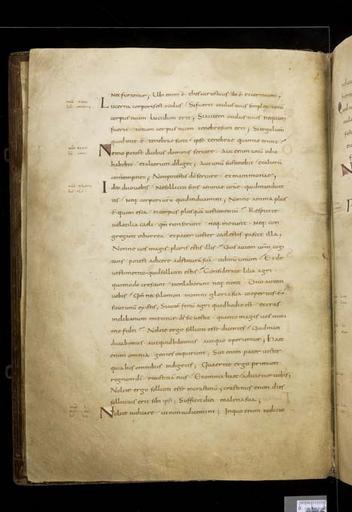 Nec furantur; Ubi enim ē thesaurus tuus ibi ē et cor tuum;
Lucerna corporis est oculus; Si fuerit oculus tuus simplex totū
corpus tuum lucidum erit; Si autem oculus tuus nequam
fuerit totum corpus tuum tenebrosum erit; Si ergo lumen
quod in te ē tenebrae sunt ipsae tenebrae quantae erunt;
Nemo potest duobus dominis servire; Aut enim unū odio
habebit et alterum diliget; Aut unū sustinebit et alterū
contemnet; Non potestis deo servire et mamonae;
Ideo dico vobis Ne solliciti sitis animae vrae quid manduce
tis Neq corpori vro quid induamini; Nonne anima plus
ē quam esca et corpus plus quā vestimentum; Respicite
volatilia caeli qm non serunt neq metunt Neq con
gregant in horrea et pater vester caelestis pascit illa;
Nonne vos magis pluris estis illis Quis autem vrm cogi
tans potest adicere ad staturā suā cubitū unum Et de
vestimento quid solliciti estis Considerate lilia agri
quomodo crescunt non laborant neq nent Dico autem
vobis Qm nec salomon in omni gloria sua coopertus ē
sicut unū ex istis; Si autē fenū agri quod hodie est et cras
in clibanum mittitur ds sic vestit quanto magis vos mini
mae fidei Nolite ergo solliciti esse dicentes Quid man
ducabimus aut quid bibemus aut quo operiemur; Haec
enim omnia gentes inquirunt; Scit enim pater vester
quia his omnibus indigetis; Quaerite ergo primum
regnum di et iustitiā eius Et omnia haec adicientur vobis;
Nolite ergo solliciti esse in crastinū; crastinus enim dies
sollicitus erit sibi ipsi; Sufficit diei malitia sua;
Nolite iudicare ut non iudicemini; In quo enim iudicio